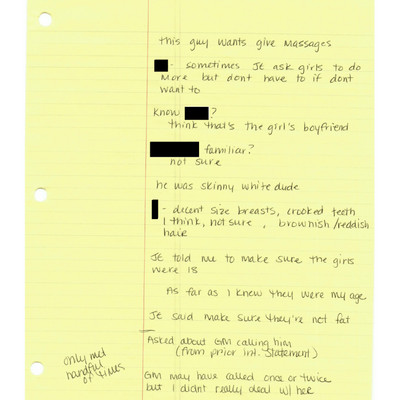 this guy wants give massages
- sometimes JE ask girls to do
more but dont have to if dont
want to
know ?
think that's the girl's boyfriend
familiar?
not sure
he was skinny white dude
- decent size breasts, crooked teeth
I think, not sure, brownish/reddish
hair
JE told me to make sure the girls
were 18
As far as I knew they were my age
JE said make sure they're not fat
Asked about GM calling him
(from prior int. statement)
only met
handful
of times
GM may have called once or twice
but I didnt really deal w/ her